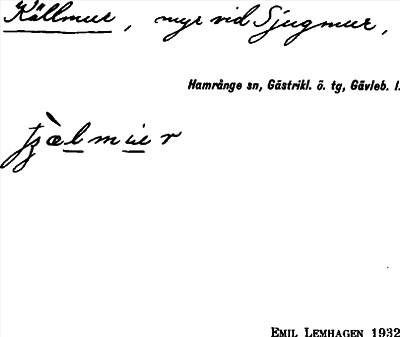 Källmur, myr vid Sjugmur,
Hamrånge sn, Gästrikl. ö. tg, Gävleb. l.
EMIL LEMHAGEN 1932